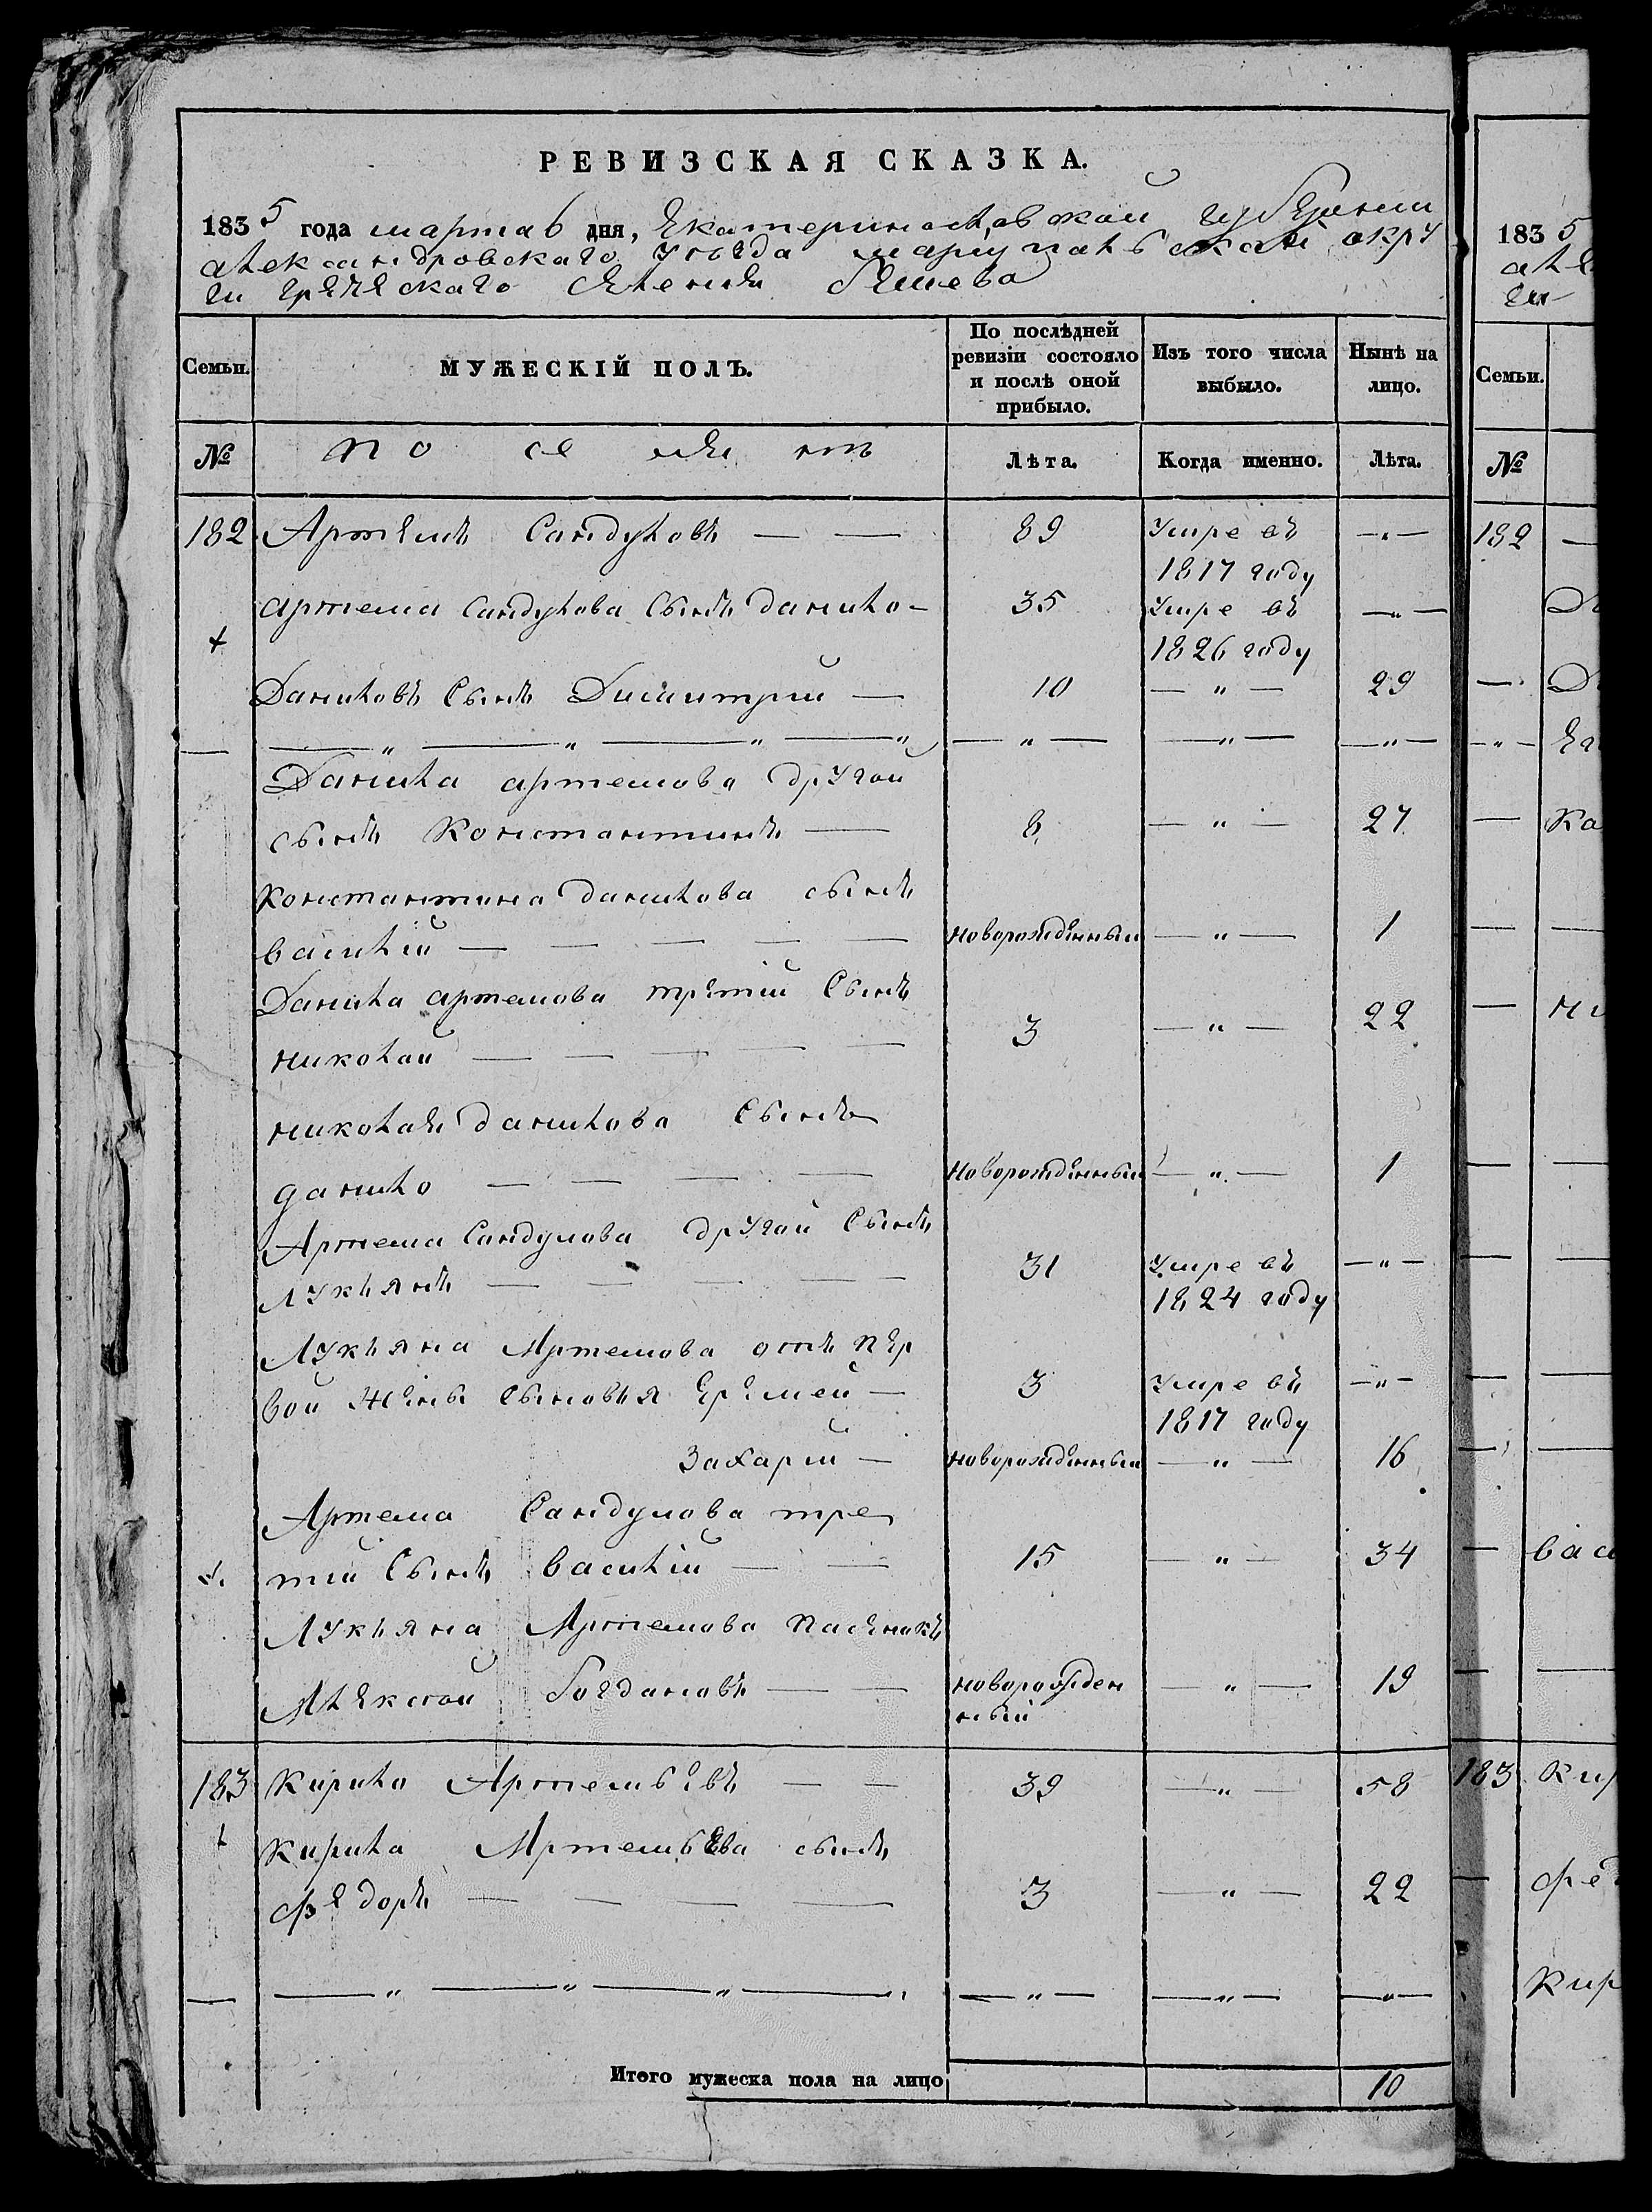 РЕВИЗСКАЯ СКАЗКА.
1835 года марта 6 дня, Екатеринославской губернии
александровскаго уезда мариупольской окру
ги греческаго селения Бешева
Семьи.
МУЖЕСКІЙ ПОЛЪ.
По послѣдней ревизіи состояло и послѣ оной прибыло.
Изъ того числа выбыло.
Нынѣ на лицо.
№
поселянъ
Лѣта.
Когда именно.
Лѣта.
182 Артемъ Сандуловъ — — 89 Умре въ 1817 году —„—
артема Сандулова сынъ данило — 35 Умре въ 1826 году —„—
Даниловъ Сынъ Димитрий — 10 —„— 29
— —„— —„— —„— —„ —„— —„— —„—
Данила артемова другой
сынъ Константинъ — 8 —„— 27
Константина данилова сынъ
василій — — — — — новорожденный —„— 1
Данила артемова третій Сынъ
николай — — — — — 3 —„— 22
николая данилова Сынъ
данило — — — — новорожденный —„— 1
Артема Сандулова другой Сынъ
Лукьянъ — — — — 31 Умре въ 1824 году —„—
Лукьяна Артемова отъ пер
вой жены сыновья Еремей — 3 Умре въ 1817 году —„—
Захарий — новорожденный —„— 16
Артема Сандулова тре
тій Сынъ василій — — 15 —„— 34
Лукьяна Артемова пасенокъ
Алексей Богдановъ — — новорожден —„— 19
ный
183 Кирило Артемьевъ — — 39 —„— 58
Кирила Артемьева сынъ
Федоръ — — — — 3 —„— 22
— —„— —„— —„— —„ —„— —„— —„—
Итого мужеска пола на лицо 10
1835
але
ги
Семьи.
№
182 —
—
Ка
—
ни
—
васи
—
183 Кир
фед
Кир